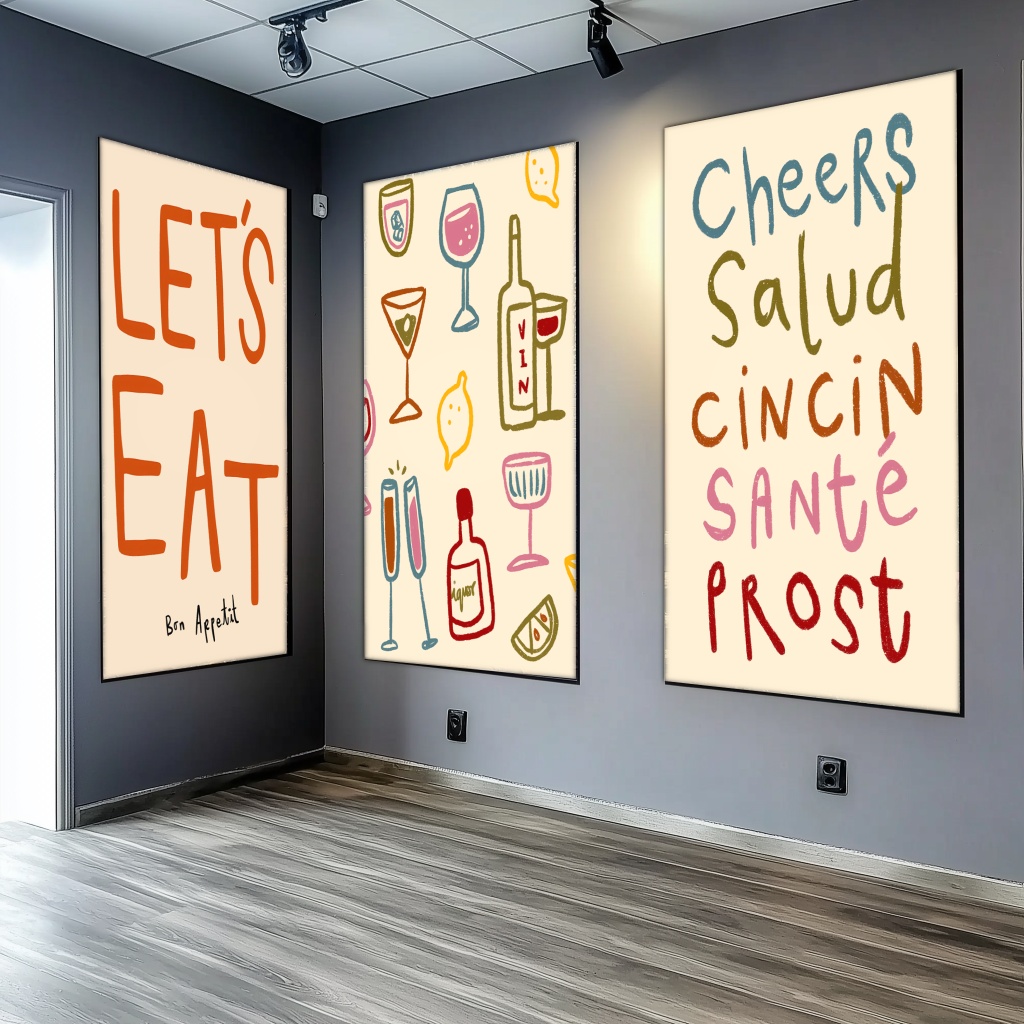 LET'S
EAT
Bon Appetit
VIN
liquor
Cheers
Salud
cincin
Santé
Prost